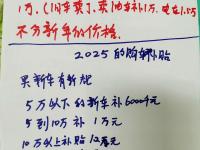 1万. (旧车卖). 卖油车补1万. 电车1.5万
不万新车的价格.
2025的购车补贴
买新车有补贴
5万以下的新车补6000元
5到10万补1万元
10万以上补贴12000元